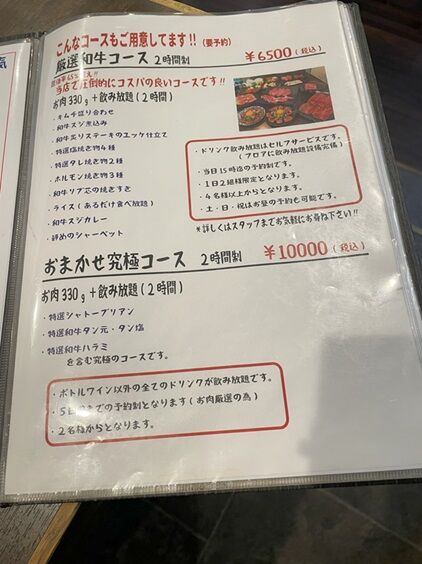 こんなコースもご用意してます!! (要予約)
厳選和牛コース 2時間制 ¥6500(税込)
当店で圧倒的にコスパの良いコースです!!
お肉330g+飲み放題(2時間)
・キムチ盛り合わせ
・和牛スジ煮込み
・和牛炙りステーキのユッケ仕立て
・特選塩焼き物4種
・特選タレ焼き物4種
・ホルモン焼き物3種
・和牛リブ芯の焼きすき
・ライス(あるだけ食べ放題)
・和牛スジカレー
・〆めのシャーベット
・ドリンク飲み放題はセルフサービスです。
(フロアに飲み放題設備完備)
・当日15時迄の予約制です。
・1日2組様限定となります。
・4名様以上からとなります。
・土・日・祝はお昼の予約も可能です。
*詳しくはスタッフまでお気軽にお尋ね下さい!!
おまかせ究極コース 2時間制 ¥10000(税込)
お肉330g+飲み放題(2時間)
・特選シャトーブリアン
・特選和牛タン元・タン塩
・特選和牛ハラミ
を含む究極のコースです。
・ボトルワイン以外の全てのドリンクが飲み放題です。
・5日前までの予約制となります(お肉厳選の為)
・2名様からとなります。